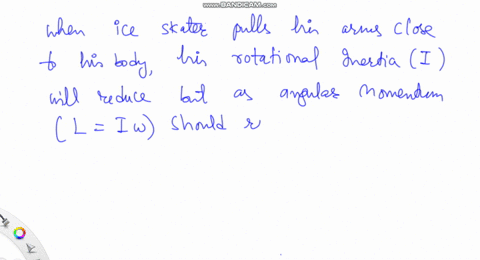 www.BANDICAM.com
when ice skater pulls his arms close
to his body, his rotational Inertia (I)
will reduce but as angular Momentum
(L = Iω) should r